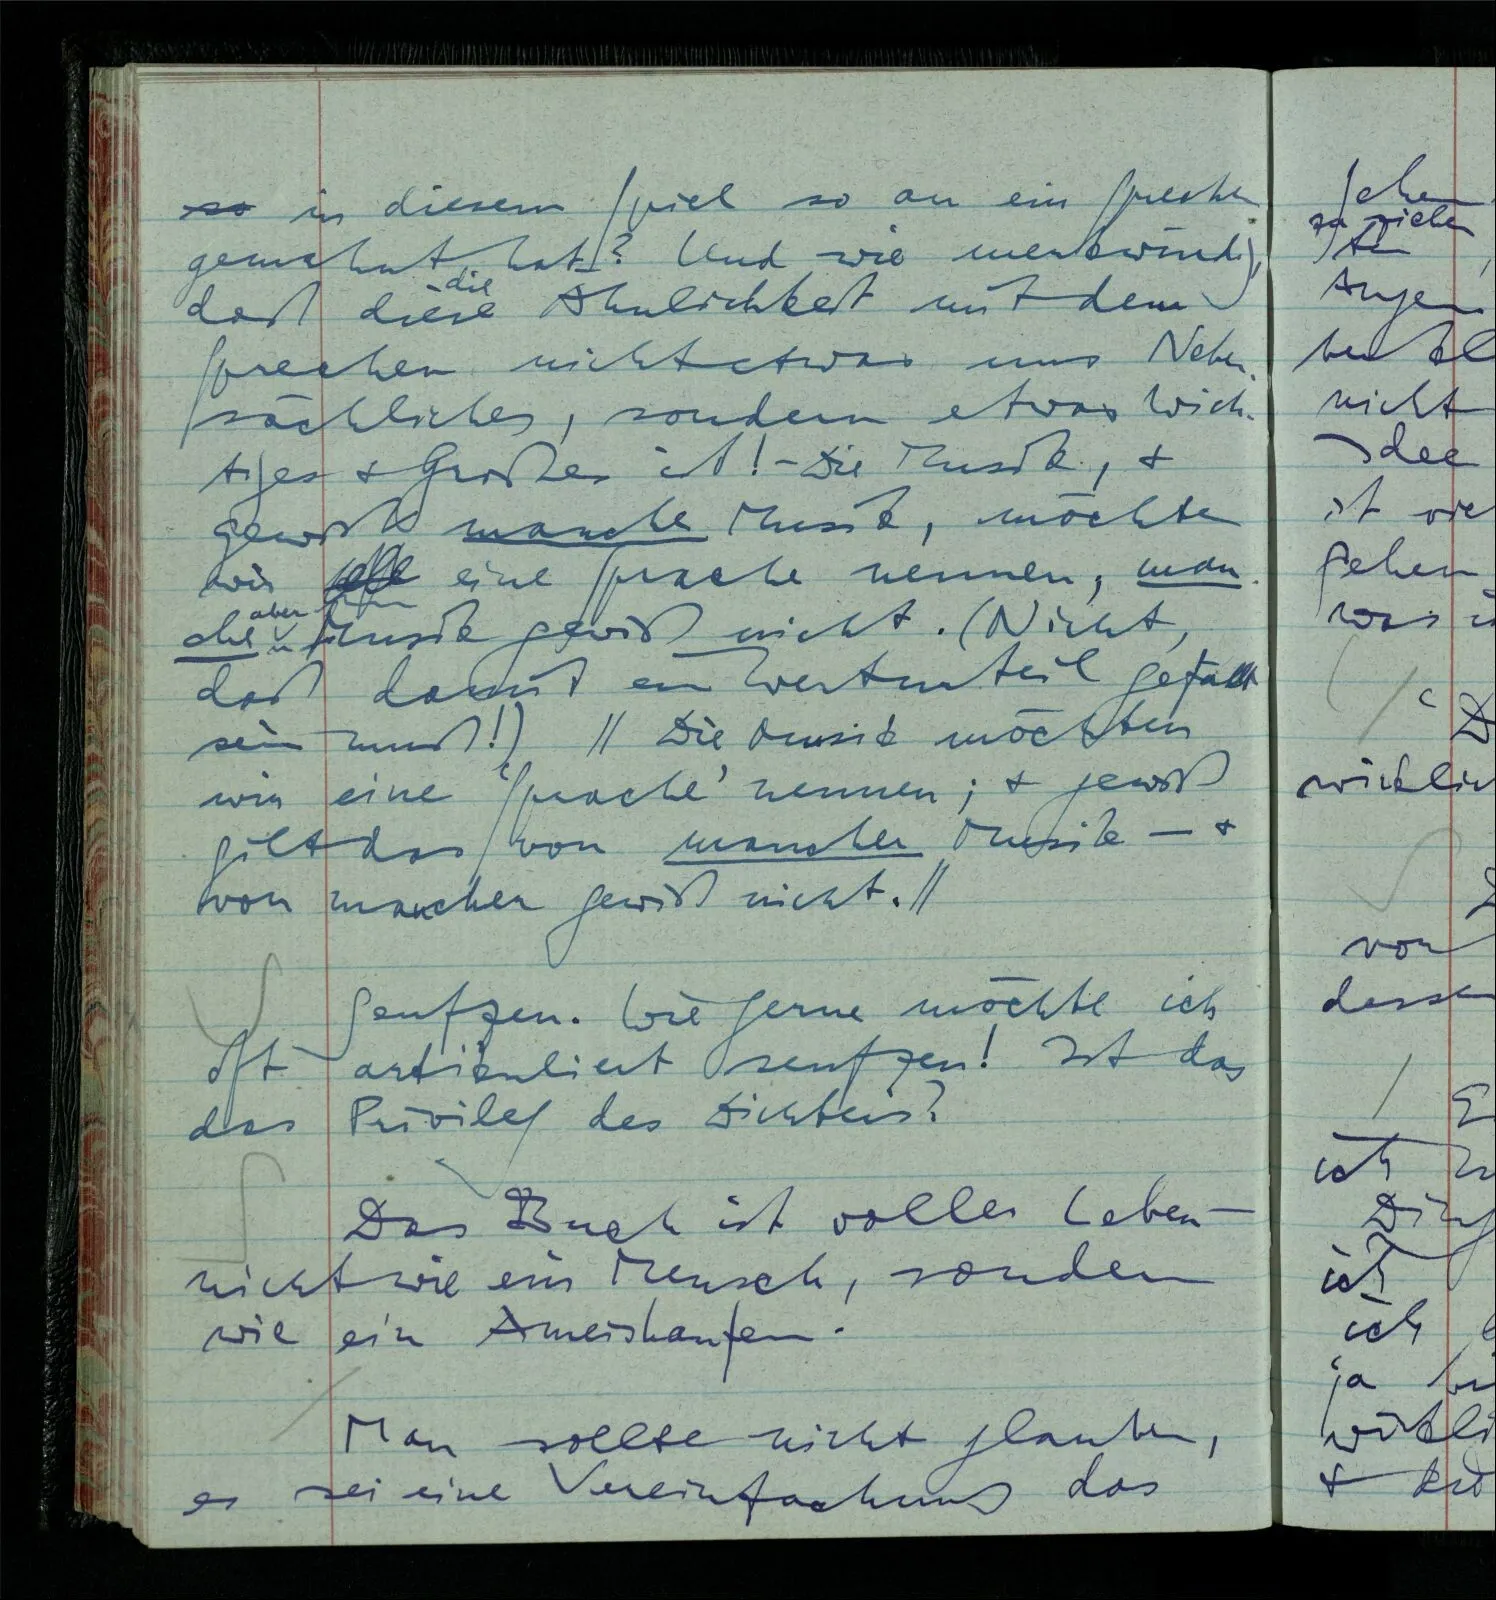 so in diesem Spiel so an ein Sprechen
gemahnt hat? Und wie merkwürdig,
daß diese die Ähnlichkeit mit dem
Sprechen nicht etwas uns Neben-
sächliches, sondern etwas Wich-
tiges & Großes ist! – Die Musik, &
gewiß manche Musik, möchten
wir eine Sprache nennen; man-
che aber Musik gewiß nicht. (Nicht,
daß damit ein Werturteil gefällt
sein muß!) // Die Musik möchten
wir eine 'Sprache' nennen; & gewiß
gilt das von mancher Musik — &
von mancher gewiß nicht. //
Seufzen. Wie gerne möchte ich
oft artikuliert seufzen! Ist das
das Privileg des Dichters?
Das Buch ist voller Leben –
nicht wie ein Mensch, sondern
wie ein Ameishaufen.
Man sollte nicht glauben,
es sei eine Vereinfachung das
sehen
zu ziehen
Augen
nicht
Idee
ist
gehen
was
wirklich
von
dessen
ich
ich
ich
ja
&